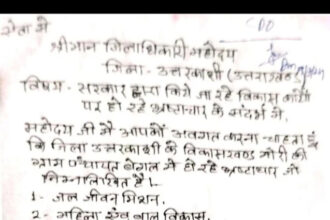 सेवा में
CDO
श्रीमान जिलाधिकारी महोदय
जिला - उत्तरकाशी (उत्तराखण्ड)
विषय - सरकार द्वारा किये जा रहे विकास कार्यो
पर हो रहे भ्रष्टाचार के संदर्भ में,
महोदय जी मैं आपको अवगत करना चाहता हूं
कि जिला उत्तरकाशी के विकासखण्ड मोरी की
ग्राम पंचायत में हो रहे भ्रष्टाचार जो
निम्नलिखित है।
1 - जल जीवन मिशन.
2 - महिला एवं बाल विकास.